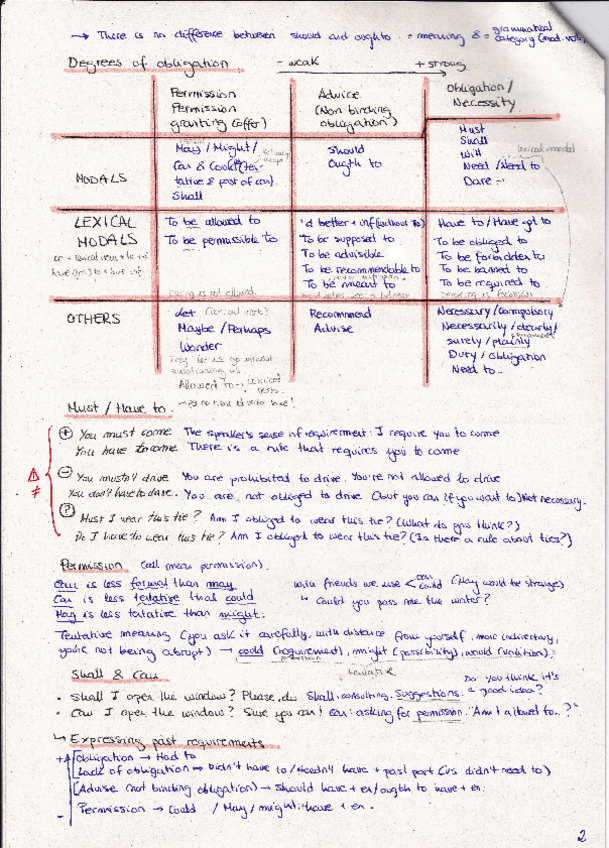 → There is no difference between should and ought to. = meaning & = grammatical category (mod. vbs)
Degrees of obligation. - weak + strong
Permission
Permission granting (offer)
Advice
(Non binding obligation)
Obligation/
Necessity
MODALS
May / Might /
Can & Could (ten-
tative & past of can)
Shall
Should
Ought to
Must
Shall
Will
Need / Need to
Dare
lexical modal
LEXICAL
MODALS
To be allowed to
To be permissible to
'd better + inf (without to)
To be supposed to
To be advisible
To be recommendable to
To be meant to
Have to / Have got to
To be obliged to
To be forbidden to
To be banned to
To be required to
Smoking is forbidden
OTHERS
Let (lexical verb)
Maybe / Perhaps
Wonder
They let us go without
questioning us.
Allowed to.. lexical verbs.
Recommend
Advise
Necessary / compulsory
Necessarily / clearly /
surely / plainly
Duty / Obligation
Need to..
Must / Have to.
⊕ You must come The speaker's sense of requirement: I require you to come
You have to come There is a rule that requires you to come
⚠ ≠
⊖ You mustn't drive You are prohibited to drive. You're not allowed to drive
You don't have to drive. You are not obliged to drive (but you can if you want to) Not necessary.
? Must I wear this tie? Am I obliged to wear this tie? (What do you think?)
Do I have to wear this tie? Am I obliged to wear this tie? (Is there a rule about ties?)
Permission (all mean permission).
Can is less formal than may
Can is less tentative that could
May is less tentative than might.
with friends we use < can could (May would be strange)
Could you pass me the water?
Tentative meaning (you ask it carefully, with distance from yourself, more indirectly,
you're not being abrupt) → could (requirement), might (possibility), would (volition).
Shall & Can
• Shall I open the window? Please, do Shall: consulting. Suggestions. Do you think it's a good idea?
• Can I open the window? Sure you can! can: asking for permission. "Am I allowed to..?"
↳ Expressing past requirements
+ [Obligation → Had to
Lack of obligation → Didn't have to / Needn't have + past part (vs didn't need to)
[Advise (not binding obligation) → Should have + en / ought to have + en
- Permission → Could / May / might: have + en.
2